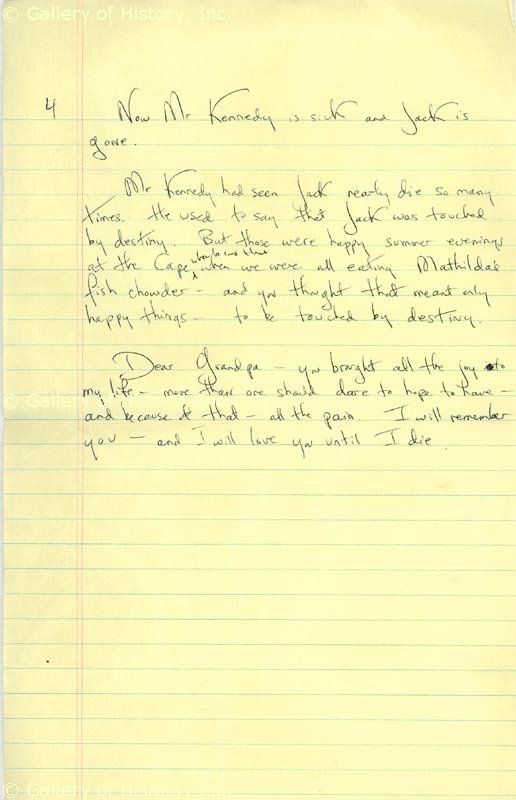 © Gallery of History, Inc.
4 Now Mr Kennedy is sick and Jack is
gone.
Mr Kennedy had seen Jack nearly die so many
times. He used to say that Jack was touched
by destiny. But those were happy summer evenings
when he said that
at the Cape when we were all eating Mathilda's
fish chowder - and you thought that meant only
happy things - to be touched by destiny.
Dear Grandpa - you brought all the joy to
my life - more than one should dare to hope to have -
© Gallery of History, Inc.
and because of that - all the pain. I will remember
you - and I will love you until I die.
© Gallery of History, Inc.